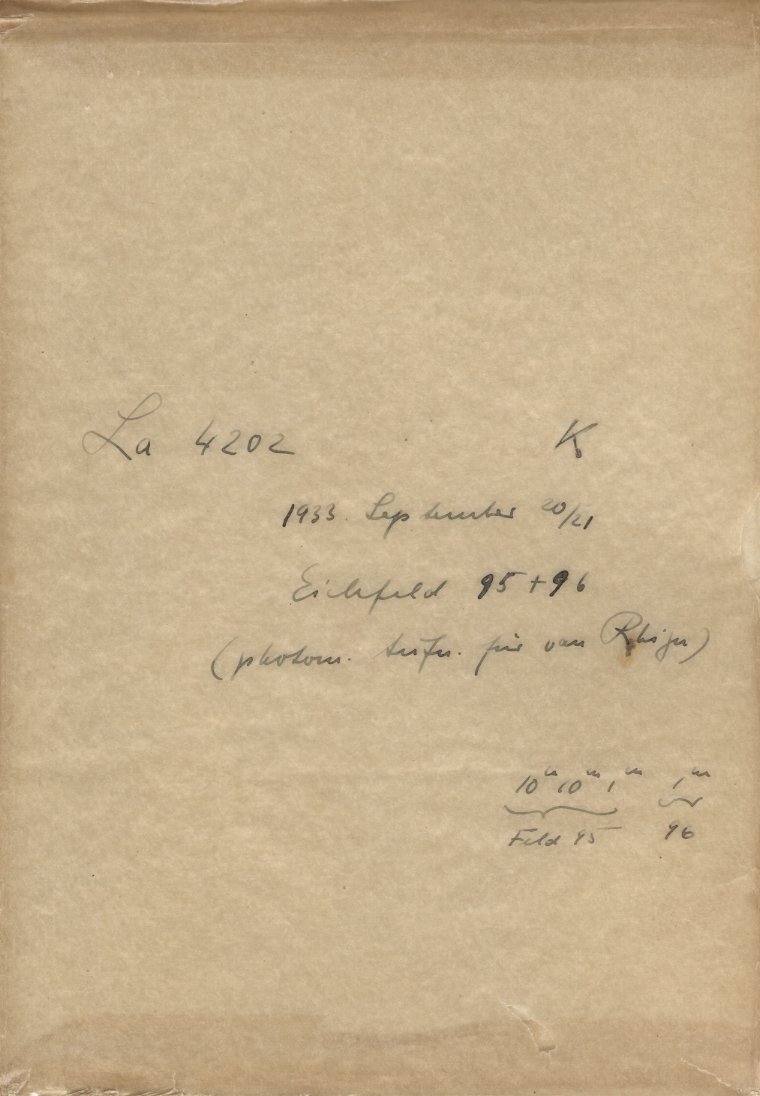 La 4202 K
1933. September 20/21
Eichfeld 95+96
(photom. Aufn. für van Rhijn)
10m 10m 1m 1m
Feld 95 96